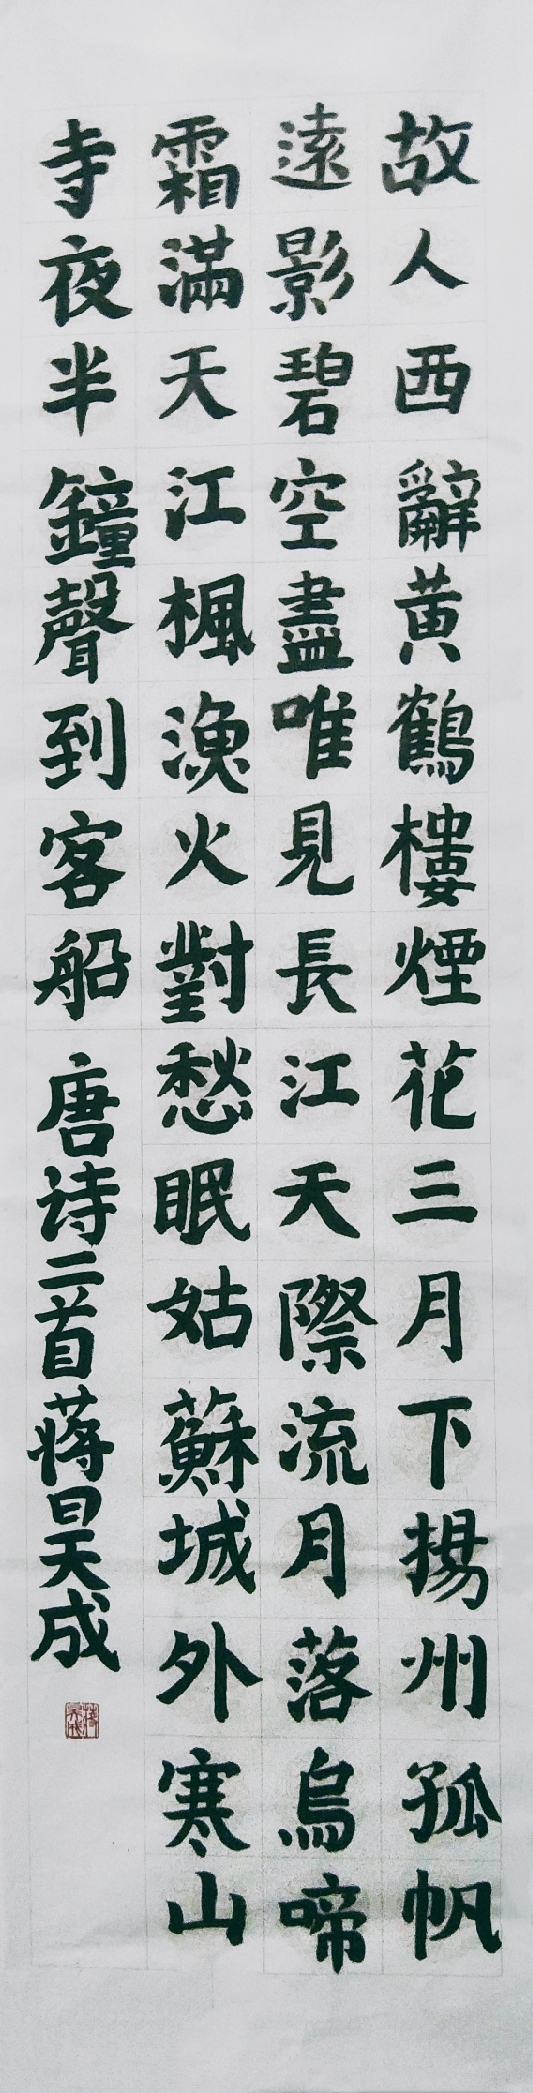 故人西辭黃鶴樓煙花三月下揚州孤帆
遠影碧空盡唯見長江天際流月落烏啼
霜滿天江楓漁火對愁眠姑蘇城外寒山
寺夜半鐘聲到客船 唐诗二首蒋昊成